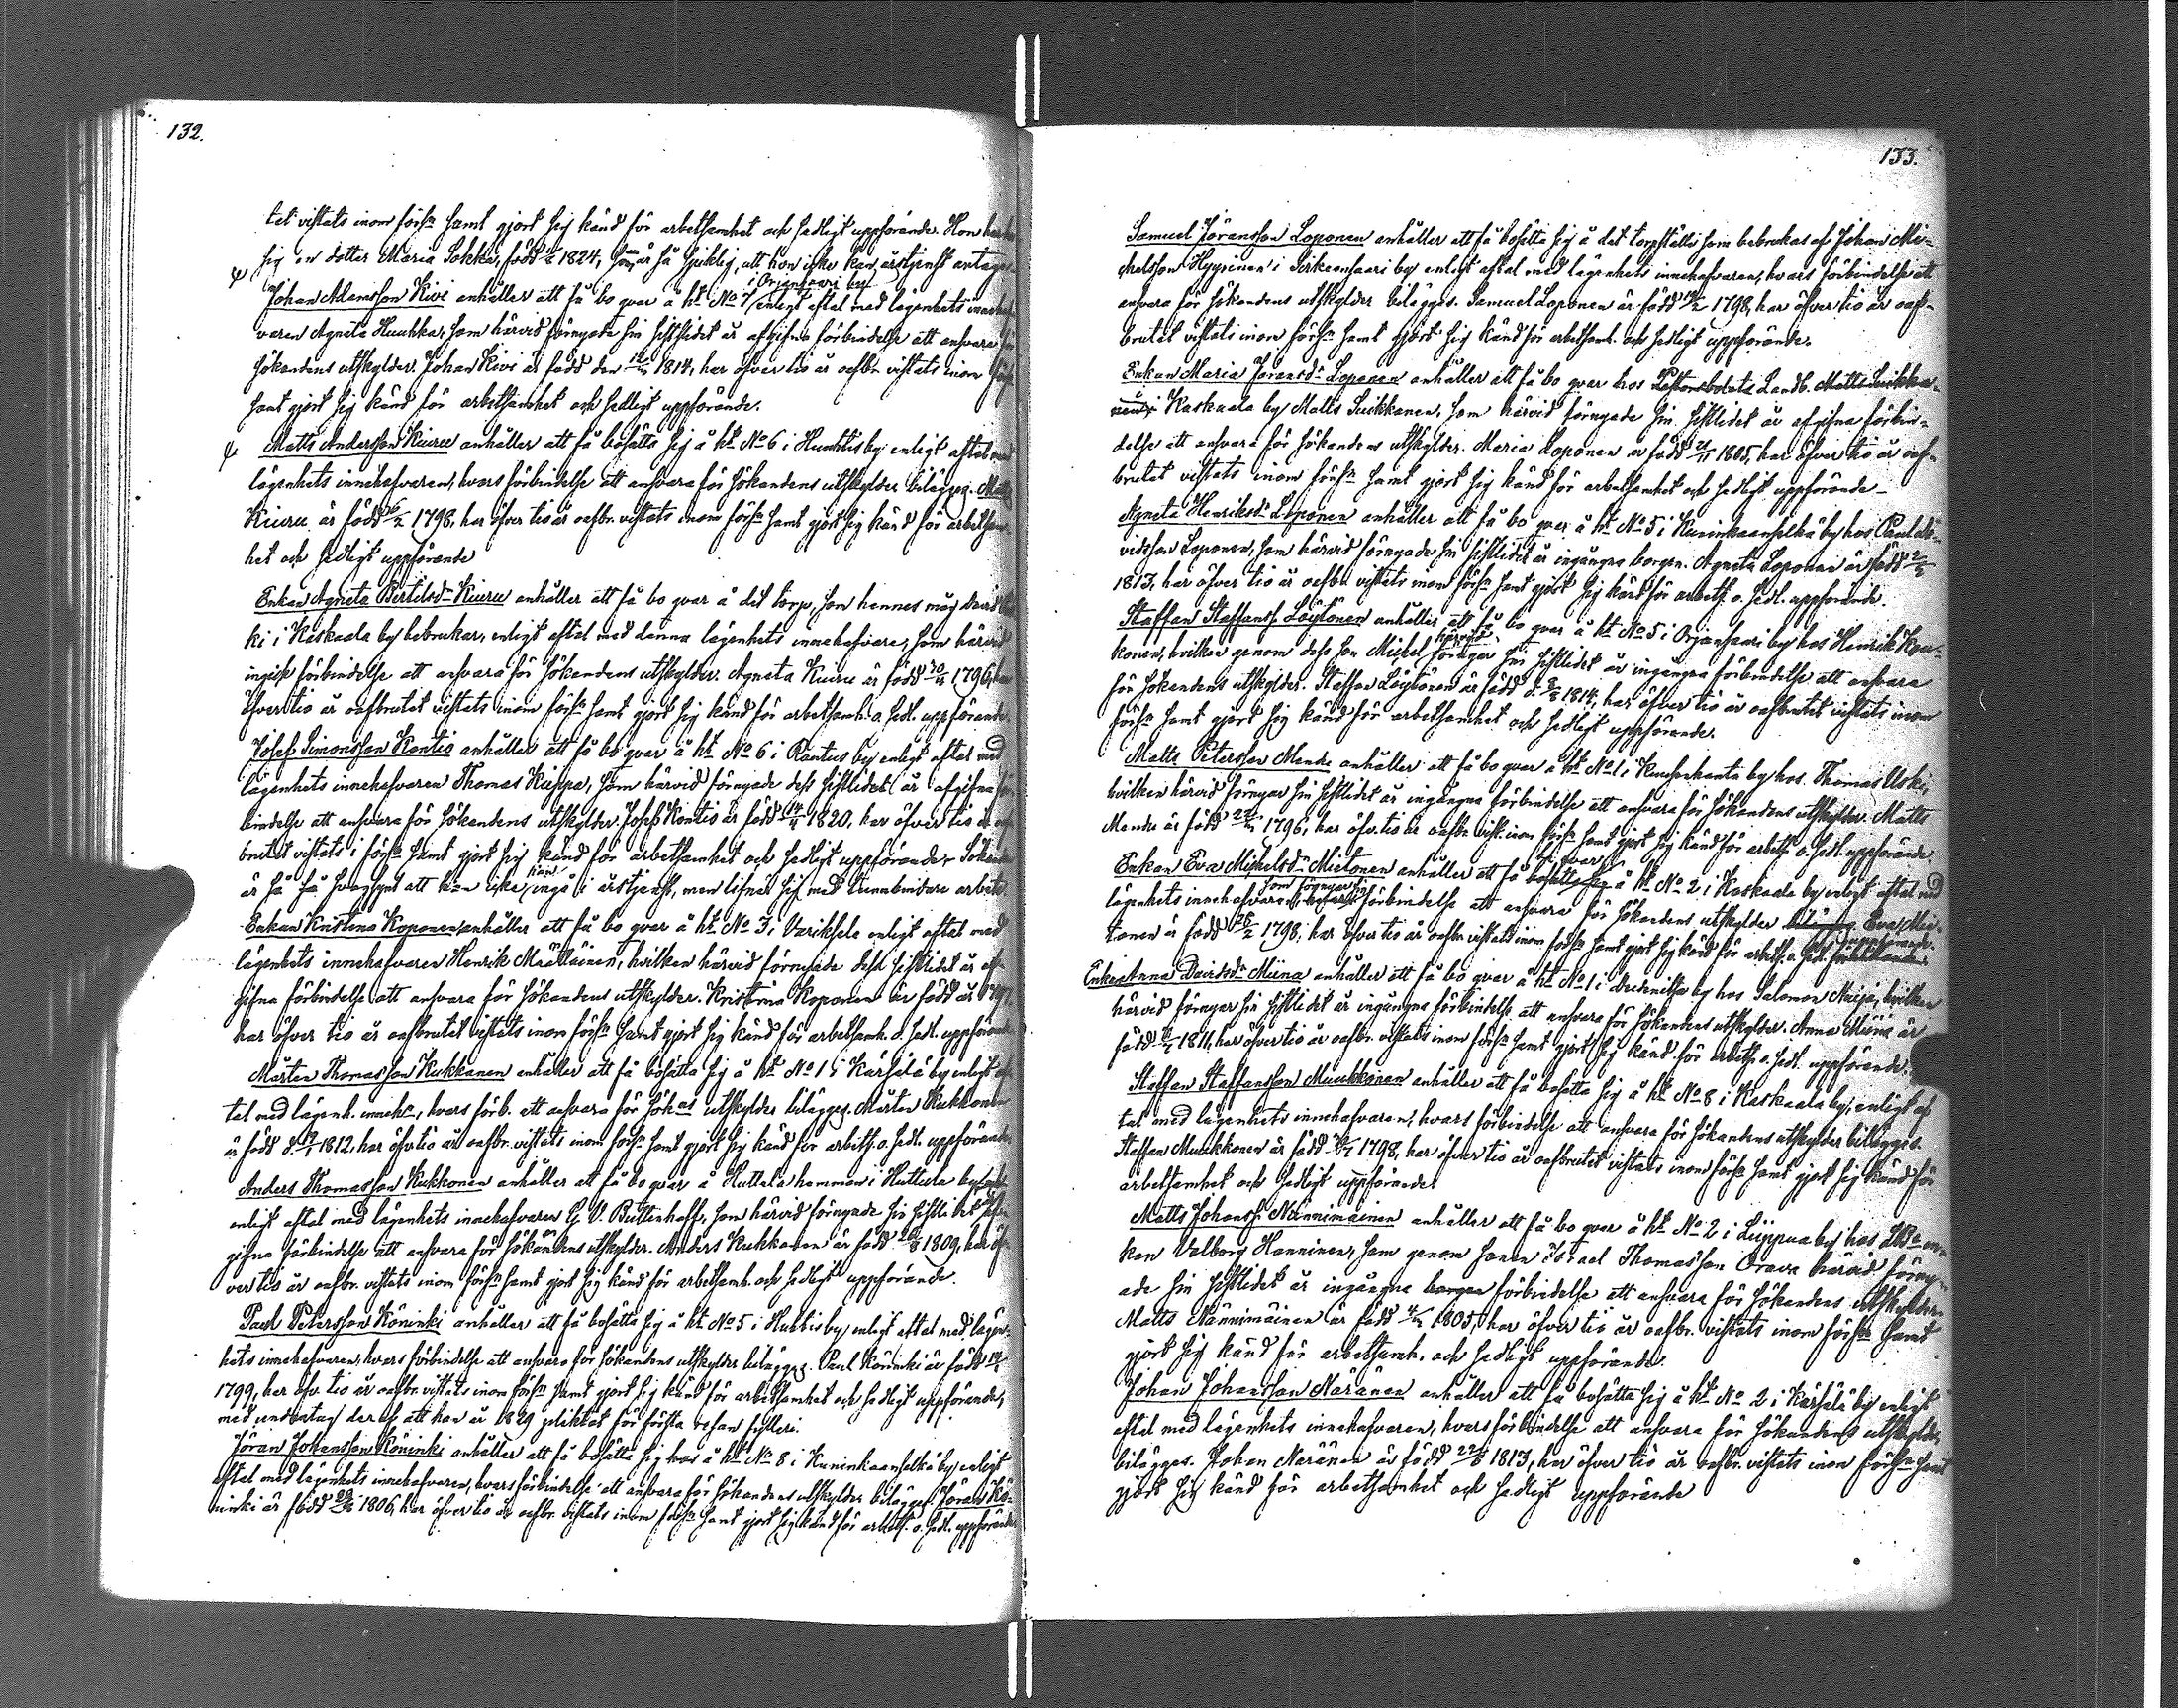 132.
tet vistats inom förs:n samt gjort sig känd för arbetsamhet och sedligt uppförande. Hon har hos
sig en dotter Maria Sokka, född 1824, som är så sjuklig, att hon icke kan årstjenst antaga.
i Orjansaari by
Johan Adamsson Kivi anhåller att få bo qvar å ht No 7 enligt aftal med lägenhets inneha-
varen Agneta Huuhka, som härvid förnyade sin sistlidet år afgifna förbindelse att ansvara för
sökandens utskylder. Johan Kivi är född den 1814, har öfver tio år oafbr. vistats inom förs:n
samt gjort sig känd för arbetsamhet och sedligt uppförande.
Matts Andersson Kuiru anhåller att få bosätta sig å ht No 6 i Huuhtis by enligt aftal med
lägenhets innehafvaren, hvars förbindelse att ansvara för sökandens utskylder bilägges. Matts
Kuiru är född 1798, har öfver tio år oafbr. vistats inom förs:n samt gjort sig känd för arbetsam-
het och sedligt uppförande
Enkan Agneta Bertilsd:r Kuiru anhåller att få bo qvar å det torp, som hennes måg David
ki i Kaskaala by bebrukar, enligt aftal med denna lägenhets innehafvare, som härvid
ingick förbindelse att ansvara för sökandens utskylder. Agneta Kuiru är född 1796, har
öfver tio år oafbrutet vistats inom förs:n samt gjort sig känd för arbetsamh. o. sedl. uppförande.
Josef Simonsson Kontio anhåller att få bo qvar å ht No 6 i Rantus by enligt aftal med
lägenhets innehafvaren Thomas Kuppa, som härvid förnyade dess sistlidet år afgifna för-
bindelse att ansvara för sökandens utskylder. Josef Kontio är född 14/4 1820, har öfver tio år oaf-
brutet vistats i förs:n samt gjort sig känd för arbetsamhet och sedligt uppförande. Sökanden
är så svagsynt att han icke kan ingå i årstjenst, men lifnär sig med tunnbindare arbete.
Enkan Kristina Koponen anhåller att få bo qvar å ht No 3 i Variksela enligt aftal med
lägenhets innehafvaren Henrik Määttäinen, hvilken härvid förnyade dess sistlidet år af-
gifna förbindelse att ansvara för sökandens utskylder. Kristina Koponen är född år
har öfver tio år oafbrutet vistats inom förs:n samt gjort sig känd för arbetsamh. o. sedl. uppförande
Mårten Thomasson Kukkonen anhåller att få bosätta sig å ht No 1 i Kärsälä by enligt af-
tal med lägenh. inneh:n, hvars förb. att ansvara för sök:ns utskylder bilägges. Mårten Kukkonen
är född d. 1812, har öfv. tio år oafbr. vistats inom förs:n samt gjort sig känd för arbets. o. sedl. uppförande.
Anders Thomasson Kukkonen anhåller att få bo qvar å Huttula hemman i Huttula by,
enligt aftal med lägenhets innehafvaren G. V. Buttenhoff, som härvid förnyade sin sistlidet år af-
gifna förbindelse att ansvara för sökandens utskylder. Anders Kukkonen är född 1809, har öf-
ver tio år oafbr. vistats inom förs:n samt gjort sig känd för arbetsamh. och sedligt uppförande.
Paul Petersson Köninki anhåller att få bosätta sig å ht No 5 i Huhtis by enligt aftal med lägen-
hets innehafvaren, hvars förbindelse att ansvara för sökandens utskylder bilägges. Paul Köninki är född
1799, har öfv. tio år oafbr. vistats inom förs:n samt gjort sig känd för arbetsamhet och sedligt uppförande,
med undantag deraf att han år 1829 pliktat för första resan fylleri.
Jöran Johansson Köninki anhåller att få bosätta sig hos å ht No 8 i Kuninkaanselkä by enligt
aftal med lägenhets innehafvaren, hvars förbindelse att ansvara för sökandens utskylder bilägges. Jöran Kö-
ninki är född 1806, har öfver tio år oafbr. vistats inom förs:n samt gjort sig känd för arbets. o. sedl. uppförande.
133.
Samuel Jöransson Loponen anhåller att få bosätta sig å det torpställe som bebrukas af Johan Mi-
chelsson Hyyrinen i Sirkeensaari by enligt aftal med lägenhets innehafvaren, hvars förbindelse att
ansvara för sökandens utskylder bilägges. Samuel Loponen är född 1798, har öfver tio år oaf-
brutet vistats inom förs:n samt gjort sig känd för arbetsamh. och sedligt uppförande.
Enkan Maria Jöransd:r Loponen anhåller att få bo qvar hos Landb. Matts Suikka-
nen i Kaskaala by Matts Suikkanen, som härvid förnyade sin sistlidet år afgifna förbin-
delse att ansvara för sökandens utskylder. Maria Loponen är född 21/11 1805, har öfver tio år oaf-
brutet vistats inom förs:n samt gjort sig känd för arbetsamhet och sedligt uppförande.
Agneta Henriksd:r Loponen anhåller att få bo qvar å ht No 5 i Kuninkaanselkä by hos Paul Da-
vidsson Loponen, som härvid förnyade sin sistlidet år ingångna borgen. Agneta Loponen är född
1813, har öfver tio år oafbr. vistats inom förs:n samt gjort sig känd för arbets. o. sedl. uppförande.
Staffan Staffanss. Löytönen anhåller att få bo qvar å ht No 5 i Orjansaari by hos Henrik Kou-
konen, hvilken genom dess son Michel härvid förnyar sin sistlidet år ingångna förbindelse att ansvara
för sökandens utskylder. Staffan Löytönen är född d. 1814, har öfver tio år oafbrutet vistats inom
förs:n samt gjort sig känd för arbetsamhet och sedligt uppförande.
Matts Petersson Mande anhåller att få bo qvar å ht No 1 i by hos Thomas Uski,
hvilken härvid förnyar sin sistlidet år ingångna förbindelse att ansvara för sökandens utskylder. Matts
Mande är född 1796, har öfv. tio år oafbr. vist. inom förs:n samt gjort sig känd för arbets. o. sedl. uppförande.
bo qvar
Enkan Eva Michelsd:r Mietonen anhåller att få bosätta sig å ht No 2 i Kaskaala by enligt aftal med
som förnyar sin
lägenhets innehafvaren, hvars förbindelse att ansvara för sökandens utskylder bilägges. Eva Mie-
tonen är född 25/2 1798, har öfver tio år oafbr. vistats inom förs:n samt gjort sig känd för arbets. o. sedl. uppförande.
Enkan Anna Davidsd:r Miina anhåller att få bo qvar å ht No 1 i by hos Salomon Naija, hvilken
härvid förnyar sin sistlidet år ingångna förbindelse att ansvara för sökandens utskylder. Anna Miina är
född 1811, har öfver tio år oafbr. vistats inom förs:n samt gjort sig känd för arbets. o. sedl. uppförande.
Staffan Staffansson Muukkonen anhåller att få bosätta sig å ht No 8 i Kaskaala by, enligt af-
tal med lägenhets innehafvaren, hvars förbindelse att ansvara för sökandens utskylder bilägges.
Staffan Muukkonen är född 1798, har öfver tio år oafbrutet vistats inom förs:n samt gjort sig känd för
arbetsamhet och sedligt uppförande.
Matts Johanss. Nännimäinen anhåller att få bo qvar å ht No 2 i Lyppua by hos en-
kan Valborg Hanninen, som genom sonen Israel Thomasson Orava härvid förny-
ade sin sistlidet år ingångna borgen förbindelse att ansvara för sökandens utskylder.
Matts Nännimäinen är född 1805, har öfver tio år oafbr. vistats inom förs:n samt
gjort sig känd för arbetsamh. och sedligt uppförande.
Johan Johansson Näränen anhåller att få bosätta sig å ht No 2 i Kärsälä by enligt
aftal med lägenhets innehafvaren, hvars förbindelse att ansvara för sökandens utskylder
bilägges. Johan Näränen är född 1813, har öfver tio år oafbr. vistats inom förs:n samt
gjort sig känd för arbetsamhet och sedligt uppförande